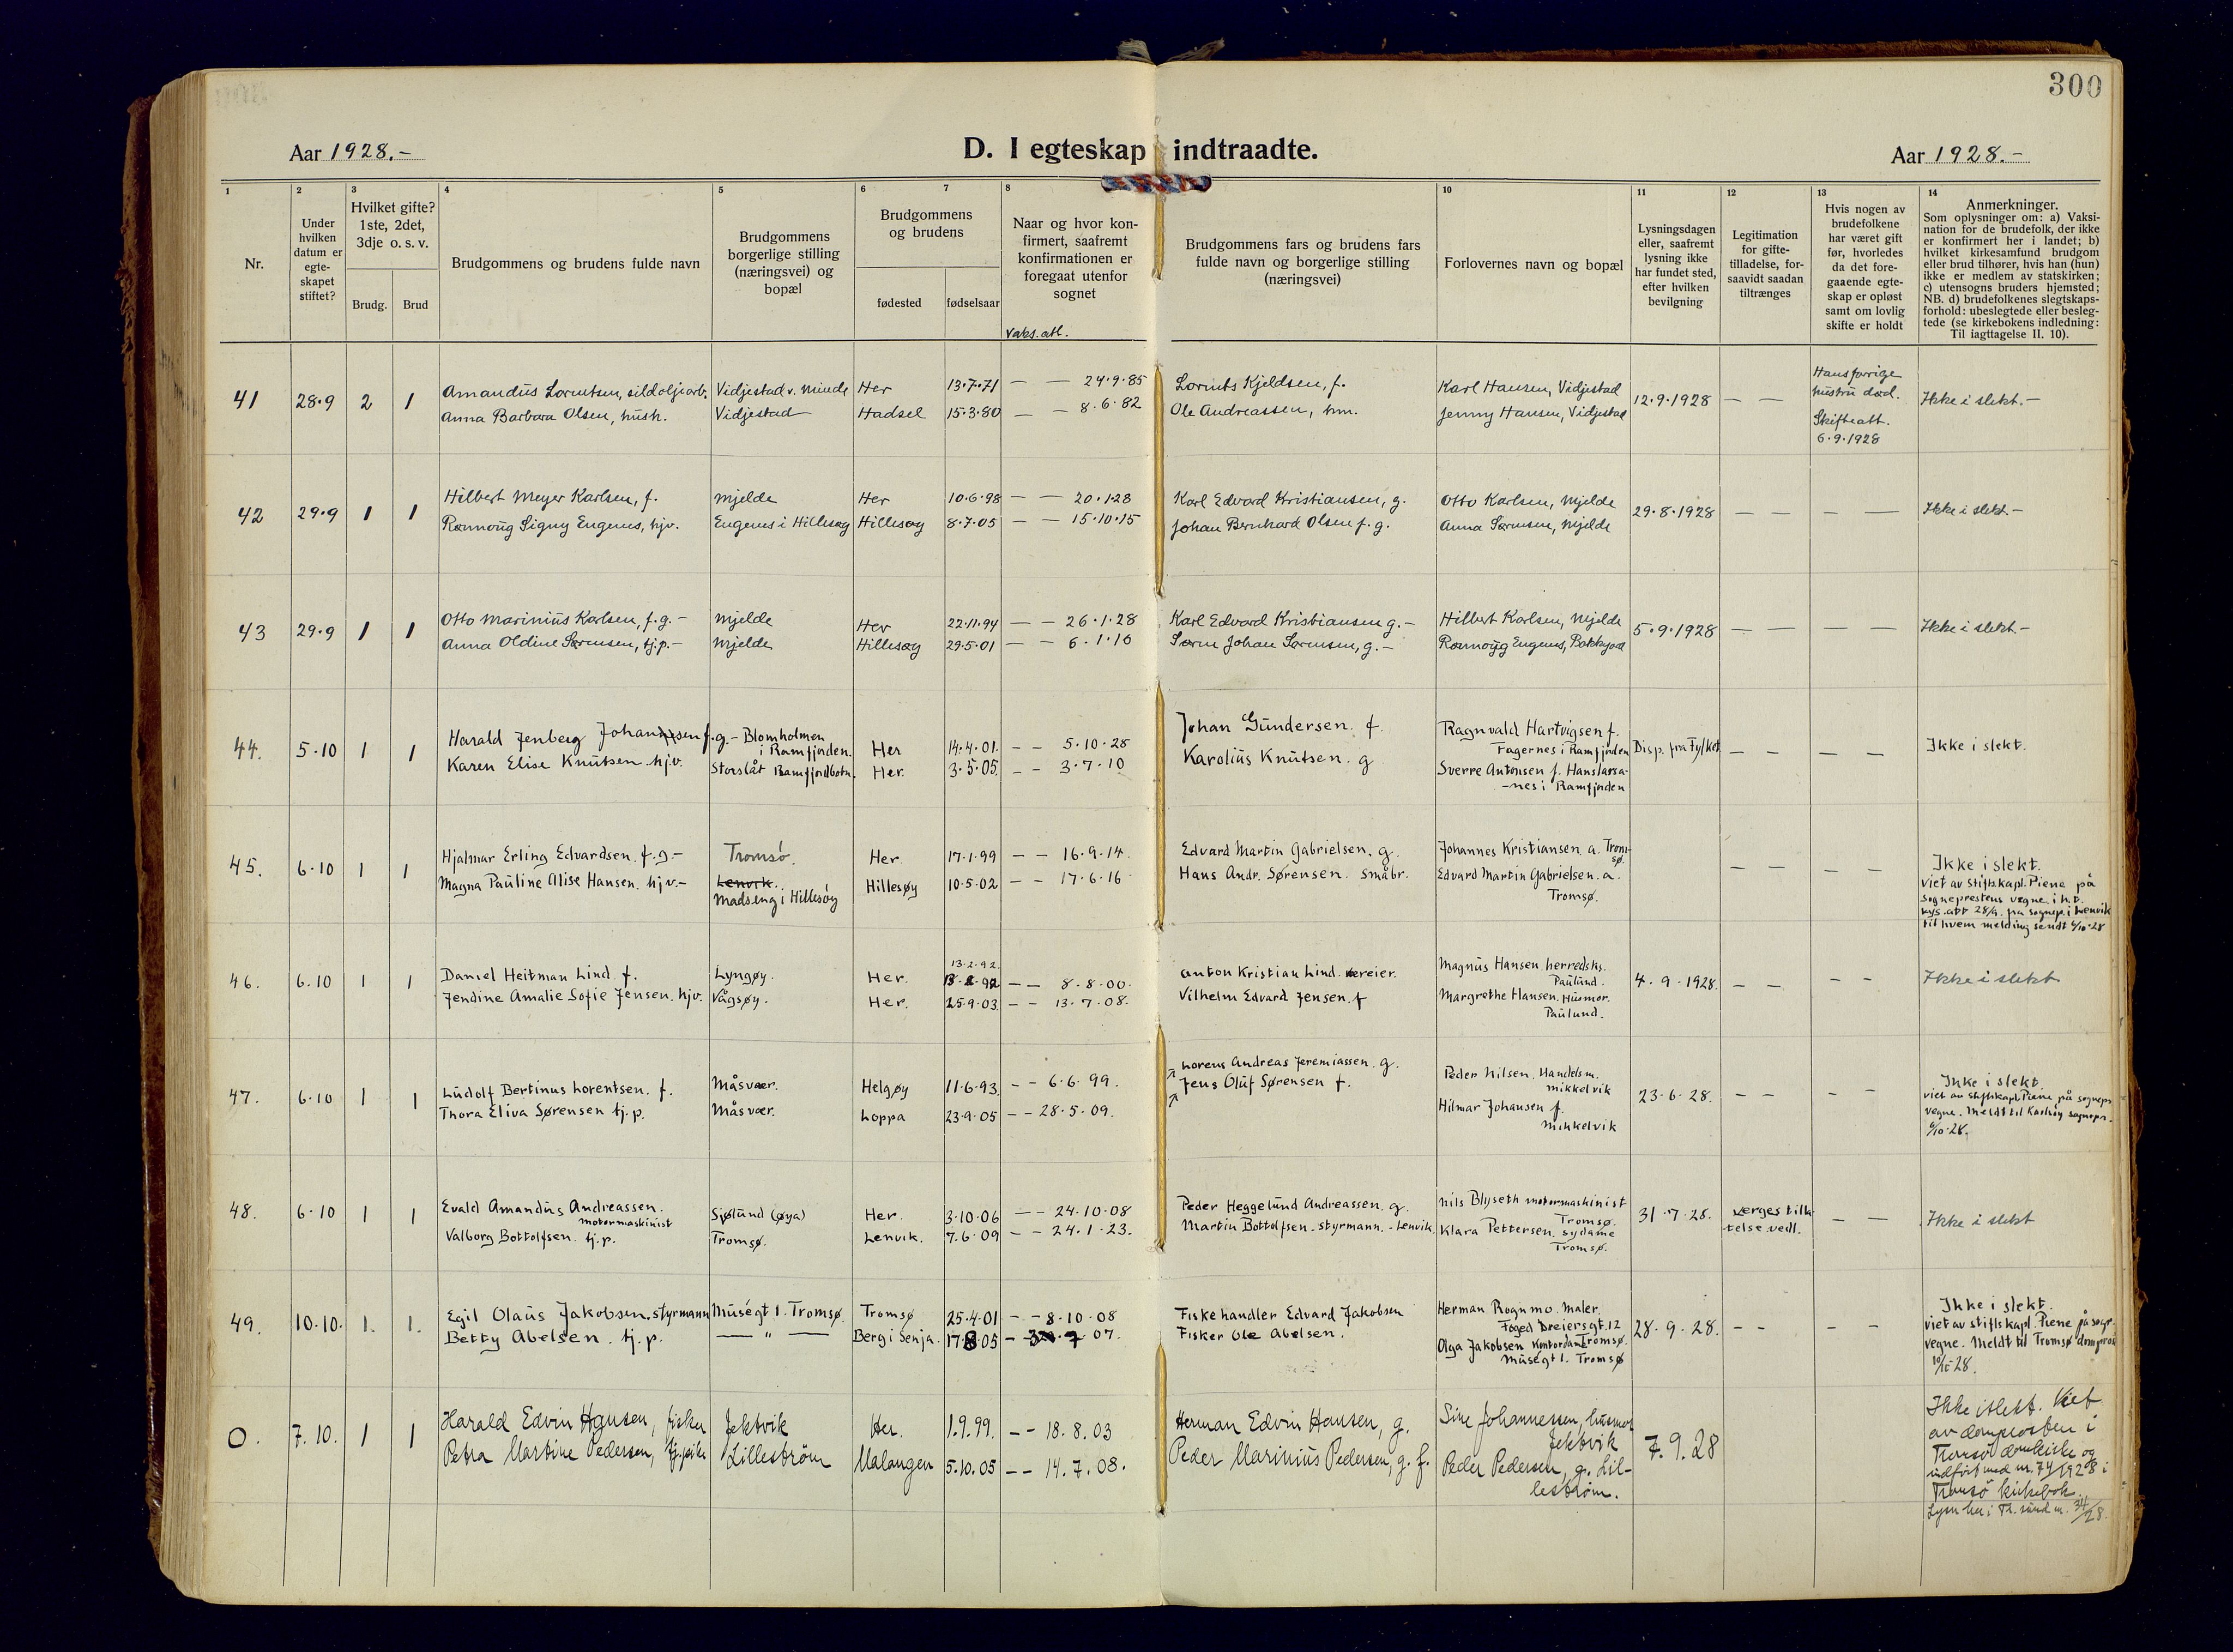 300
Aar 1928.-
D. I egteskap indtraadte.
Aar 1928.-
1
2
3
4
5
6
7
8
10
11
12
13
14
Nr.
Under hvilken datum er egte-skapet stiftet?
Hvilket gifte? 1ste, 2det, 3dje o. s. v.
Brudg.
Brud
Brudgommens og brudens fulde navn
Brudgommens borgerlige stilling (næringsvei) og bopæl
Brudgommens og brudens
fødested
fødselsaar
Naar og hvor kon-firmert, saafremt konfirmationen er foregaat utenfor sognet
Vaks.att.
Brudgommens fars og brudens fars fulde navn og borgerlige stilling (næringsvei)
Forlovernes navn og bopæl
Lysningsdagen eller, saafremt lysning ikke har fundet sted, efter hvilken bevilgning
Legitimation for gifte-tilladelse, for-saavidt saadan tiltrænges
Hvis nogen av brudefolkene har været gift før, hvorledes da det fore-gaaende egte-skap er opløst samt om lovlig skifte er holdt
Anmerkninger.
Som oplysninger om: a) Vaksi-nation for de brudefolk, der ikke er konfirmert her i landet; b) hvilket kirkesamfund brudgom eller brud tilhører, hvis han (hun) ikke er medlem av statskirken; c) utensogns bruders hjemsted; NB. d) brudefolkenes slegtskaps-forhold: ubeslegtede eller besleg-tede (se kirkebokens indledning: Til iagttagelse II. 10).
41 28.9 2 1 Amandus Lorentsen, sildoljearb. Vidjestad v. Minde Her 13.7.71 — — 24.9.85 Lornts Kjeldsen, f. Karl Hansen, Vidjestad 12.9.1928 — — Hans forrige hustru død. Skifteatt. 6.9.1928 Ikke i slekt.-
Anna Barbara Olsen, hush. Vidjestad Hadsel 15.3.80 — — 8.6.82 Ole Andreassen, hm. Jenny Hansen, Vidjestad
42 29.9 1 1 Hilbert Meyer Karlsen, f. Mjelde Her 10.6.98 — — 20.1.28 Karl Edvard Kristiansen, g. Otto Karlsen, Mjelde 29.8.1928 — — — — Ikke i slekt.-
Rannoug Signy Eugenes, hjv. Eugenes i Hillesøy Hillesøy 8.7.05 — — 15.10.15 Johan Bernhard Olsen f.g. Anna Sørensen, Mjelde
43 29.9 1 1 Otto Marinius Karlsen, f.g.- Mjelde Her 22.11.94 — — 26.1.28 Karl Edvard Kristiansen g.- Hilbert Karlsen, Mjelde 5.9.1928 — — — — Ikke i slekt.-
Anna Oldine Sørensen, tj.p.- Mjelde Hillesøy 29.5.01 — — 6.1.10 Søren Johan Sørensen, g.- Rannoug Eugenes,
44. 5.10 1 1 Harald Jenberg Johansen f.g.- Blomholmen i Ramfjorden. Her 14.4.01. — — 5.10.28 Johan Gundersen. f Ragnvald Hartvigsen f. Fagernes i Ramfjorden Disp. fra Fylket — — — — Ikke i slekt.
Karen Elise Knutsen. hjv. Storslåt Ramfjordbotn. Her. 3.5.05. — — 3.7.10 Karolius Knutsen. g Sverre Antonsen f. Hanslarsa--nes i Ramfjorden
45. 6.10 1 1 Hjalmar Erling Edvardsen. f.g.- Tromsø. Her. 17.1.99 — — 16.9.14. Edvard Martin Gabrielsen. g. Johannes Kristiansen a. Tromsø. — — — — Ikke i slekt.
Magna Pauline Alise Hansen. hjv.- Lenvik. Madseng i Hillesøy Hillesøy 10.5.02 — — 17.6.16 Hans Andr. Sørensen. småbr. Edvard Martin Gabrielsen. a. Tromsø.
viet av stiftskapl. Piene på
sogneprestens vegne i h.t.
lys.att 28/9. fra sognepr. i Lenvik
til hvem melding sendt 6/10-28
46. 6.10 1 1 Daniel Heitman Lind. f. Lyngøy. Her. 13.2.92. 13.2.92 — — 8.8.00. Anton Kristian Lind. væreier. Magnus Hansen. herredsks. Paulund. 4.9.1928. — — — — Ikke i slekt
Jendine Amalie Sofie Jensen. hjv. Vågsøy. Her. 25.9.03. — — 13.7.08. Vilhelm Edvard Jensen. f Margrethe Hansen. Husmor. Paulund.
47. 6.10 1 1 Ludolf Bertinus Lorentsen. f. Måsvær. Helgøy 11.6.93. — — 6.6.99. Lorens Andreas Jeremiassen. g. Peder Nilsen. Handelsm. Mikkelvik 23.6.28. — — — — Ikke i slekt.
Thora Eliva Sørensen tj.p. Måsvær. Loppa 23.9.05 — — 28.5.09. Jens Oluf Sørensen f. Hilmar Johansen f. Mikkelvik
viet av stiftskapl. Piene på sognepr.
vegne. Meldt til Karlsøy sognepr.
6/10-28.
48. 6.10 1 1 Evald Amandus Andreassen. motormaskinist Sjølund (øya) Her. 3.10.06 — — 24.10.08 Peder Heggelund Andreassen. g. Nils Blyseth motormaskinist Tromsø. 31.7.28. Verges tilla-telse vedl. — — Ikke i slekt
Valborg Bottolfsen. tj.p. Tromsø. Lenvik. 7.6.09 — — 24.1.23. Martin Bottolfsen. styrmann. - Lenvik. Klara Pettersen. sydame Tromsø.
49. 10.10. 1. 1. Egil Olaus Jakobsen. styrmann Muségt 1. Tromsø. Tromsø 25.4.01 — — 8.10.08 Fiskehandler Edvard Jakobsen Herman Rognmo. Maler. Foged Dreiersgt. 12 Tromsø. 28.9.28. — — — — Ikke i slekt.
Betty Abelsen. tj.p. — " — Berg i Senja. 17.8.05 07. Fisker Ole Abelsen. Olga Jakobsen Kontordame Musegt 1. Tromsø
viet av stiftskapl. Piene på sogn.
vegne. Meldt til Tromsø domprost
10/10-28.
0. 7.10. 1 1 Harald Edvin Hansen, fisker Jektvik Her. 1.9.99. — — 18.8.03 Herman Edvin Hansen, g. Sine Johannessen, husmor Jektvik 7.9.28 Ikke i slekt. Viet
Petra Martine Pedersen, tj.pike Lillestrøm Malangen 5.10.05 — — 14.7.08. Peder Marinius Pedersen, g. f. Peder Pedersen, g. Lil-lestrøm.
av domprosten i
Tromsø domkirke og
indført med nr. 74/1928 i
Tromsø kirkebok.
34/28.